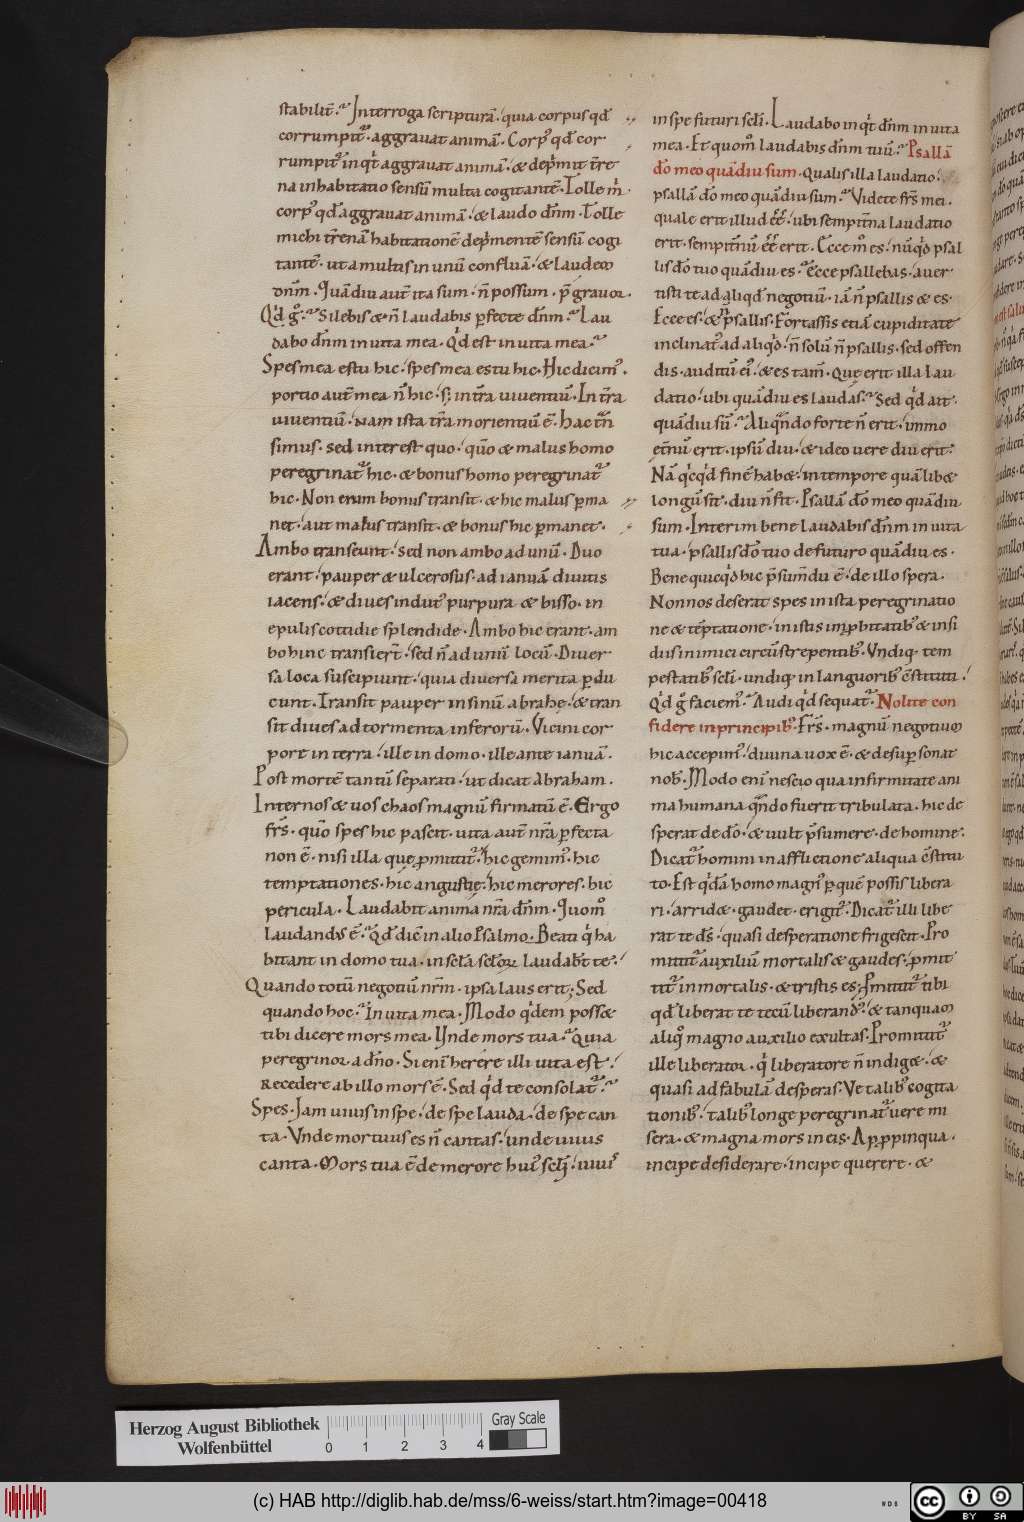 stabilit̄. Interroga scripturā. quia corpus qđ
corrumpit᷒. aggravat animā. Corp᷒ qđ cor
rumpit᷒ inqͥt aggravat animā. & dep̄mit t̄re
na inhabitatio sensū multa cogitantē. Tolle m̄
corp᷒ qđ aggravat animā. & laudo dn̄m. Tolle
michi t̄renā habitationē dep̄mentē sensū cogi
tantē. ut a multis in unū confluā. & laudem
dn̄m. Quādiu aut̄ ita sum. n̄ possum. p̄gravor.
Qͥd g̊. Silebis & n̄ laudabis perfecte dn̄m. Lau
dabo dn̄m in vita mea. Qͥd est in vita mea.
Spes mea es tu hic. spes mea es tu hic. Hic dicim᷒.
portio aut̄ mea n̄ hic. s; in t̄ra viventiū. In t̄ra
viventiū. Nam ista t̄ra morientiū ē. Hac t̄n
simus. sed interest quo. quō & malus homo
peregrinat᷒ hic. & bonus homo peregrinat᷒
hic. Non enim bonus transit. & hic malus ꝑma
net. aut malus transit. & bonus hic ꝑmanet.
Ambo transeunt. sed non ambo ad unū. Duo
erant. pauper & ulcerosus. ad ianuā divitis
iacens. & dives indut᷒ purpura & bisso. in
epulis cottidie splendide. Ambo hic erant. am
bo hinc transier̄t. sed n̄ ad unū locū. Diver
sa loca suscipiunt. quia diversa merita ꝑdu
cunt. Transit pauper in sinū abrahe. & tran
sit dives ad tormenta inferorū. Vicini cor
pore in terra. ille in domo. ille ante ianuā.
Post mortē tantū separati. ut dicat Abraham.
Inter nos & vos chaos magnū firmatū ē. Ergo
fr̄s. quō spes hic pascit. vita aut̄ nr̄a ꝑfecta
non ē. nisi illa que ꝑmittit᷒. hic gemim᷒. hic
temptationes. hic angustię. hic merores. hic
pericula. Laudabit anima nr̄a dn̄m. Quom̊
laudandus ē. Qđ dic̄ in alio Psalmo. Beati qͥ ha
bitant in domo tua. in scl̄a scl̄oꝝ laudab̄t te.
Quando totū negotiū nr̄m. ipsa laus erit; Sed
quando hoc. In vita mea. Modo qͥdem possē
tibi dicere mors mea. Unde mors tua. Quia
peregrinor a dn̄o. Si enī herere illi vita est.
Recedere ab illo mors ē. Sed qͥd te consolat᷒.
Spes. Iam vivis in spe. de spe lauda. de spe can
ta. Unde mortuus es n̄ cantas. unde vivis
canta. Mors tua ē de merore hui᷒ scl̄i. vivis
in spe futuri scl̄i. Laudabo inqͥt dn̄m in vita
mea. Et quom̊ laudabis dn̄m tuū. Psallā
dō meo quādiu sum. Qualis illa laudatio.
psallā dō meo quādiu sum. Videte fr̄s mei.
quale erit illud ē̄ē. ubi sempit̄na laudatio
erit. sempit̄nū ē̄ē erit. Ecce m̊ es. nūqͥd psal
lis dō tuo quādiu es. Ecce psallebas. aver
tisti te ad aliqđ negotiū. iā n̄ psallis & es.
Ecce es. & p̄sallis. Fortassis etiā cupiditate
inclinat᷒ ad aliqͥd. n̄ solū n̄ psallis. sed offen
dis. auditū ei᷒. & es tam̄. Que erit illa lau
datio. ubi quādiu es laudas. Sed qͥd ait.
quādiu sū. Aliqn̄do forte n̄ erit. immo
et̄nū erit. ipsū diu. & ideo vere diu erit.
Nā qͥcqͥd finē habē. in tempore quālibē
longū sit. diu n̄ fit. Psallā dō meo quādiu
sum. Interim bene laudabis dn̄m in vita
tua. psallis dō tuo de futuro quādiu es.
Bene quicqͥd hic p̄sumēdū ē. de illo spera.
Non nos deserat spes in ista peregrinatio
ne & tēptatione. in istis improbitatib᷒ & insi
diis inimici circūstrepentib᷒. Undiq; tem
pestatib᷒ scl̄i. undiq; in languorib᷒ c̄stituti.
Qͥd g̊ faciem᷒. Audi qͥd sequat᷒. Nolite con
fidere in principib᷒. Fr̄s. magnū negotium
hic accepim᷒. divina vox ē. & desuꝑ sonat
nob̄. Modo enī nescio qua infirmitate ani
ma humana qn̄do fuerit tribulata. hic de
sperat de dō. & vult p̄sumere. de homine.
Dicat᷒ homini in afflictione aliqua c̄stitu
to. Est qͥdā homo magn᷒ ꝑ quē possis libera
ri. arridē. gaudet. erigit᷒. Dicat᷒ illi libe
rat te ds̄. quasi desperatione frigescit. Pro
mittit᷒ auxiliū mortalis & gaudes. ꝓmit
tit᷒ inmortalis. & tristis es; Promittit᷒ tibi
qđ liberat te tecū liberand᷒. & tanquam
aliq᷒ magno auxilio exultas. Promittit᷒
ille liberator. qͥ liberatore n̄ indigē. &
quasi ad fabulā desperas. Ve talib᷒ cogita
tionib᷒. talib᷒ longe peregrinat᷒ vere mi
sera. & magna mors in eis. Appropinqua.
incipe desiderare. incipe querere. &
Herzog August Bibliothek
Wolfenbüttel
0 1 2 3 4
Gray Scale
(c) HAB http://diglib.hab.de/mss/6-weiss/start.htm?image=00418
cc BY SA